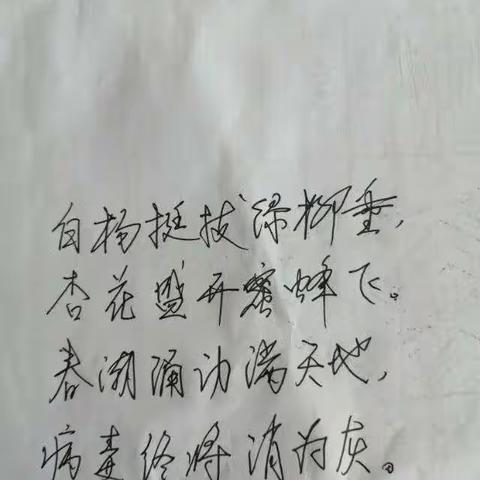 白杨挺拔绿柳垂,
杏花盛开蜜蜂飞。
春潮涌动满天地,
病毒终将消为灰。